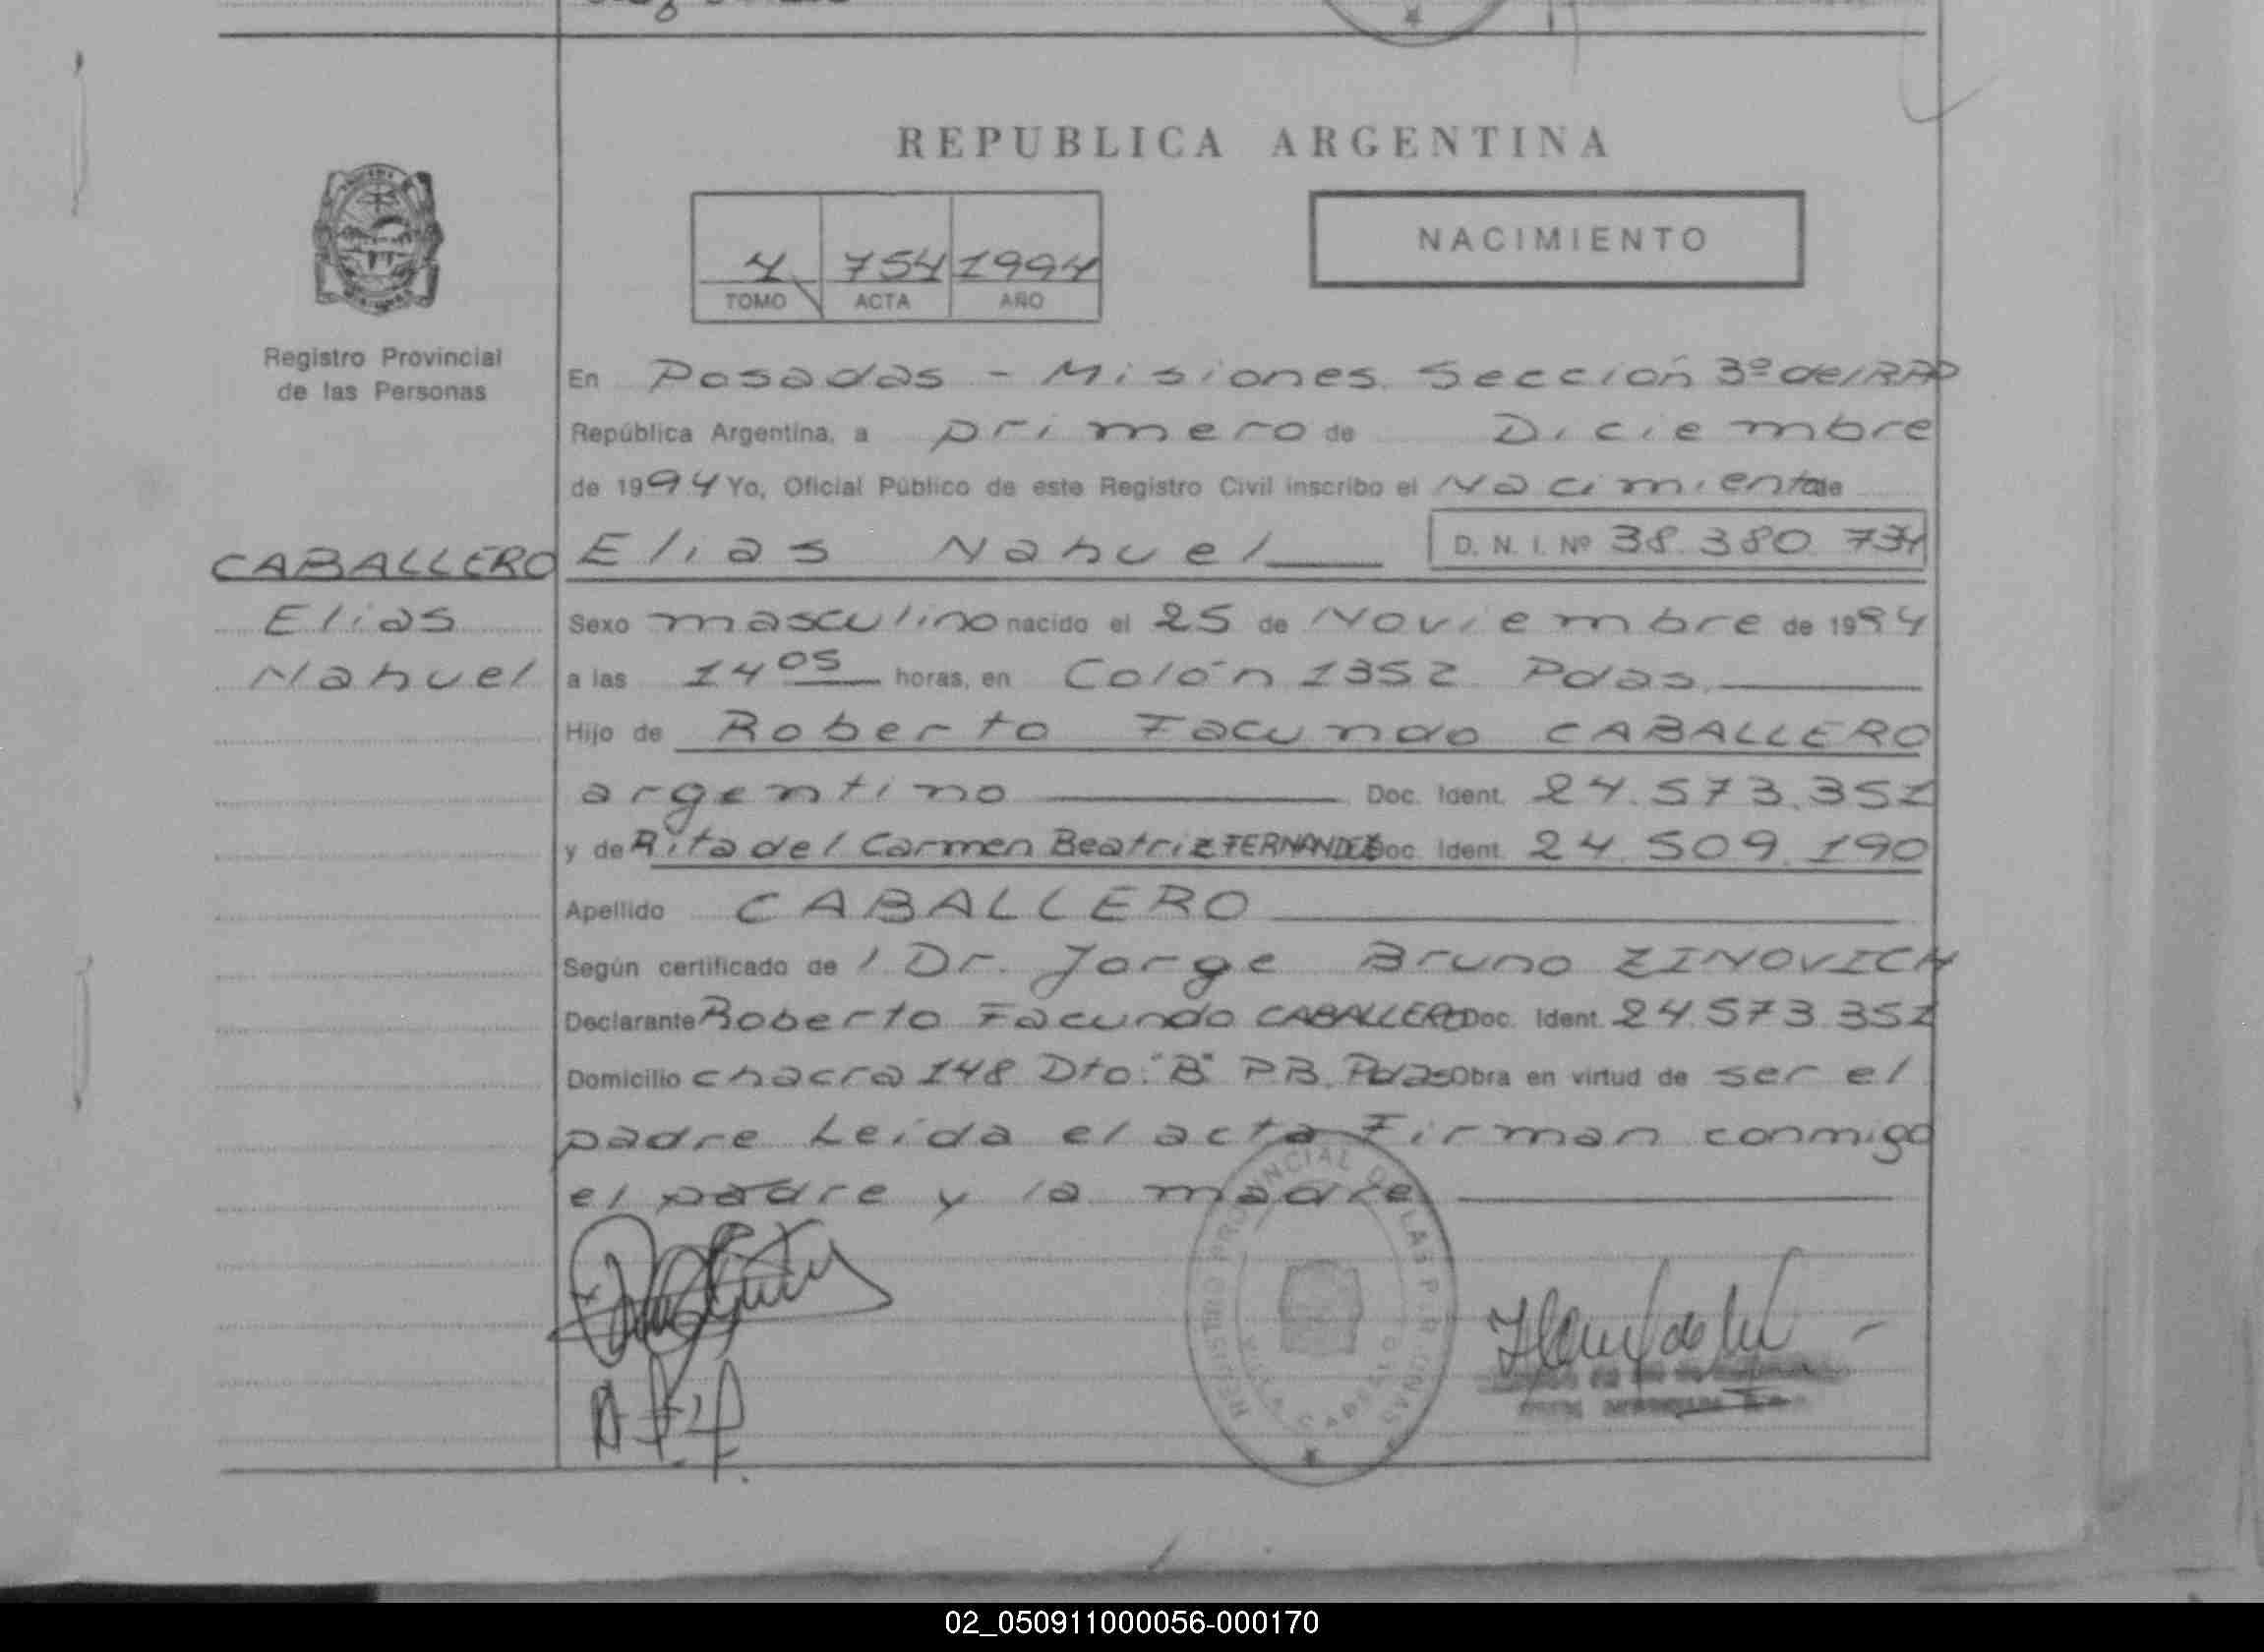 REPUBLICA ARGENTINA
4 754 1994
TOMO ACTA AÑO
NACIMIENTO
Registro Provincial
de las Personas
En Posadas - Misiones. Sección 3º del RPP
República Argentina, a primero de Diciembre
de 1994 Yo, Oficial Público de este Registro Civil inscribo el Nacimiento de
CABALLERO
Elias
Nahuel
Elias Nahuel D. N. I. Nº 38.380.734
Sexo masculino nacido el 25 de Noviembre de 1994
a las 14 05 horas, en Colón 1352 Pdas.
Hijo de Roberto Facundo CABALLERO
argentino Doc. Ident. 24.573.351
y de Rita del Carmen Beatriz FERNANDEZ Doc. Ident. 24.509.190
Apellido CABALLERO
Según certificado de l Dr. Jorge Bruno ZINOVICH
Declarante Roberto Facundo CABALLERO Doc. Ident. 24.573.351
Domicilio chacra 148 Dto. "B" PB. Pdas Obra en virtud de ser el
padre Leida el acta Firman conmigo
el padre y la madre
REGISTRO PROVINCIAL DE LAS PERSONAS
VILLA CABELLO
02_050911000056-000170